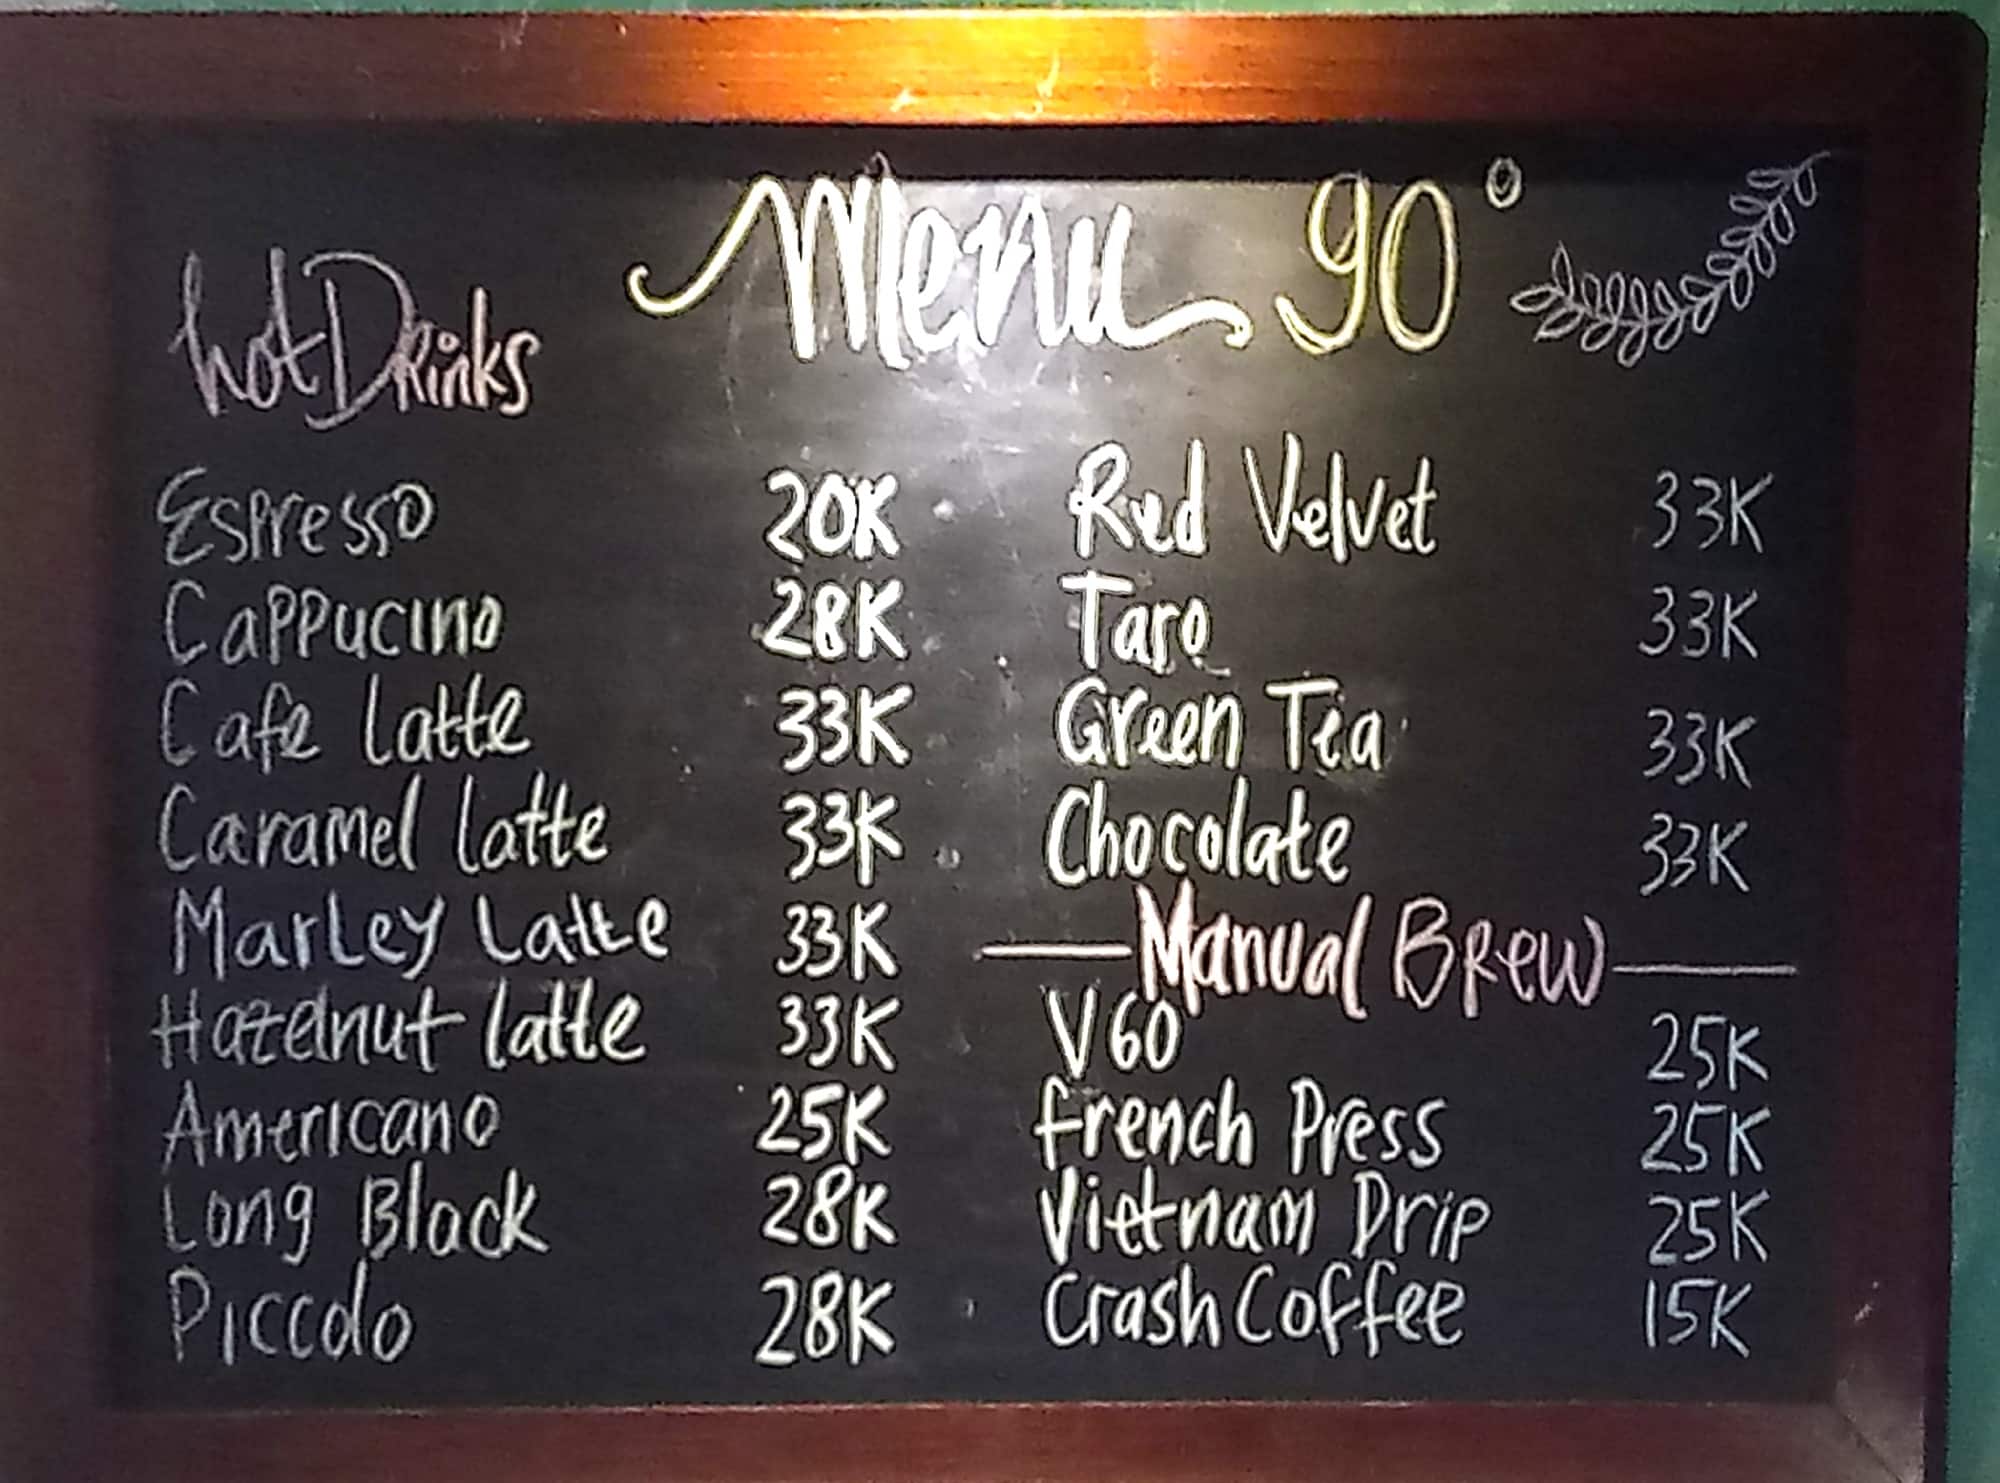 Menu 90°
hot Drinks
Espresso 20K
Cappucino 28K
Cafe latte 33K
Caramel latte 33K
Marley Latte 33K
Hazelnut latte 33K
Americano 25K
Long Black 28K
Piccolo 28K
Red Velvet 33K
Taro 33K
Green Tea 33K
Chocolate 33K
Manual Brew
V60 25K
French Press 25K
Vietnam Drip 25K
Crash Coffee 15K